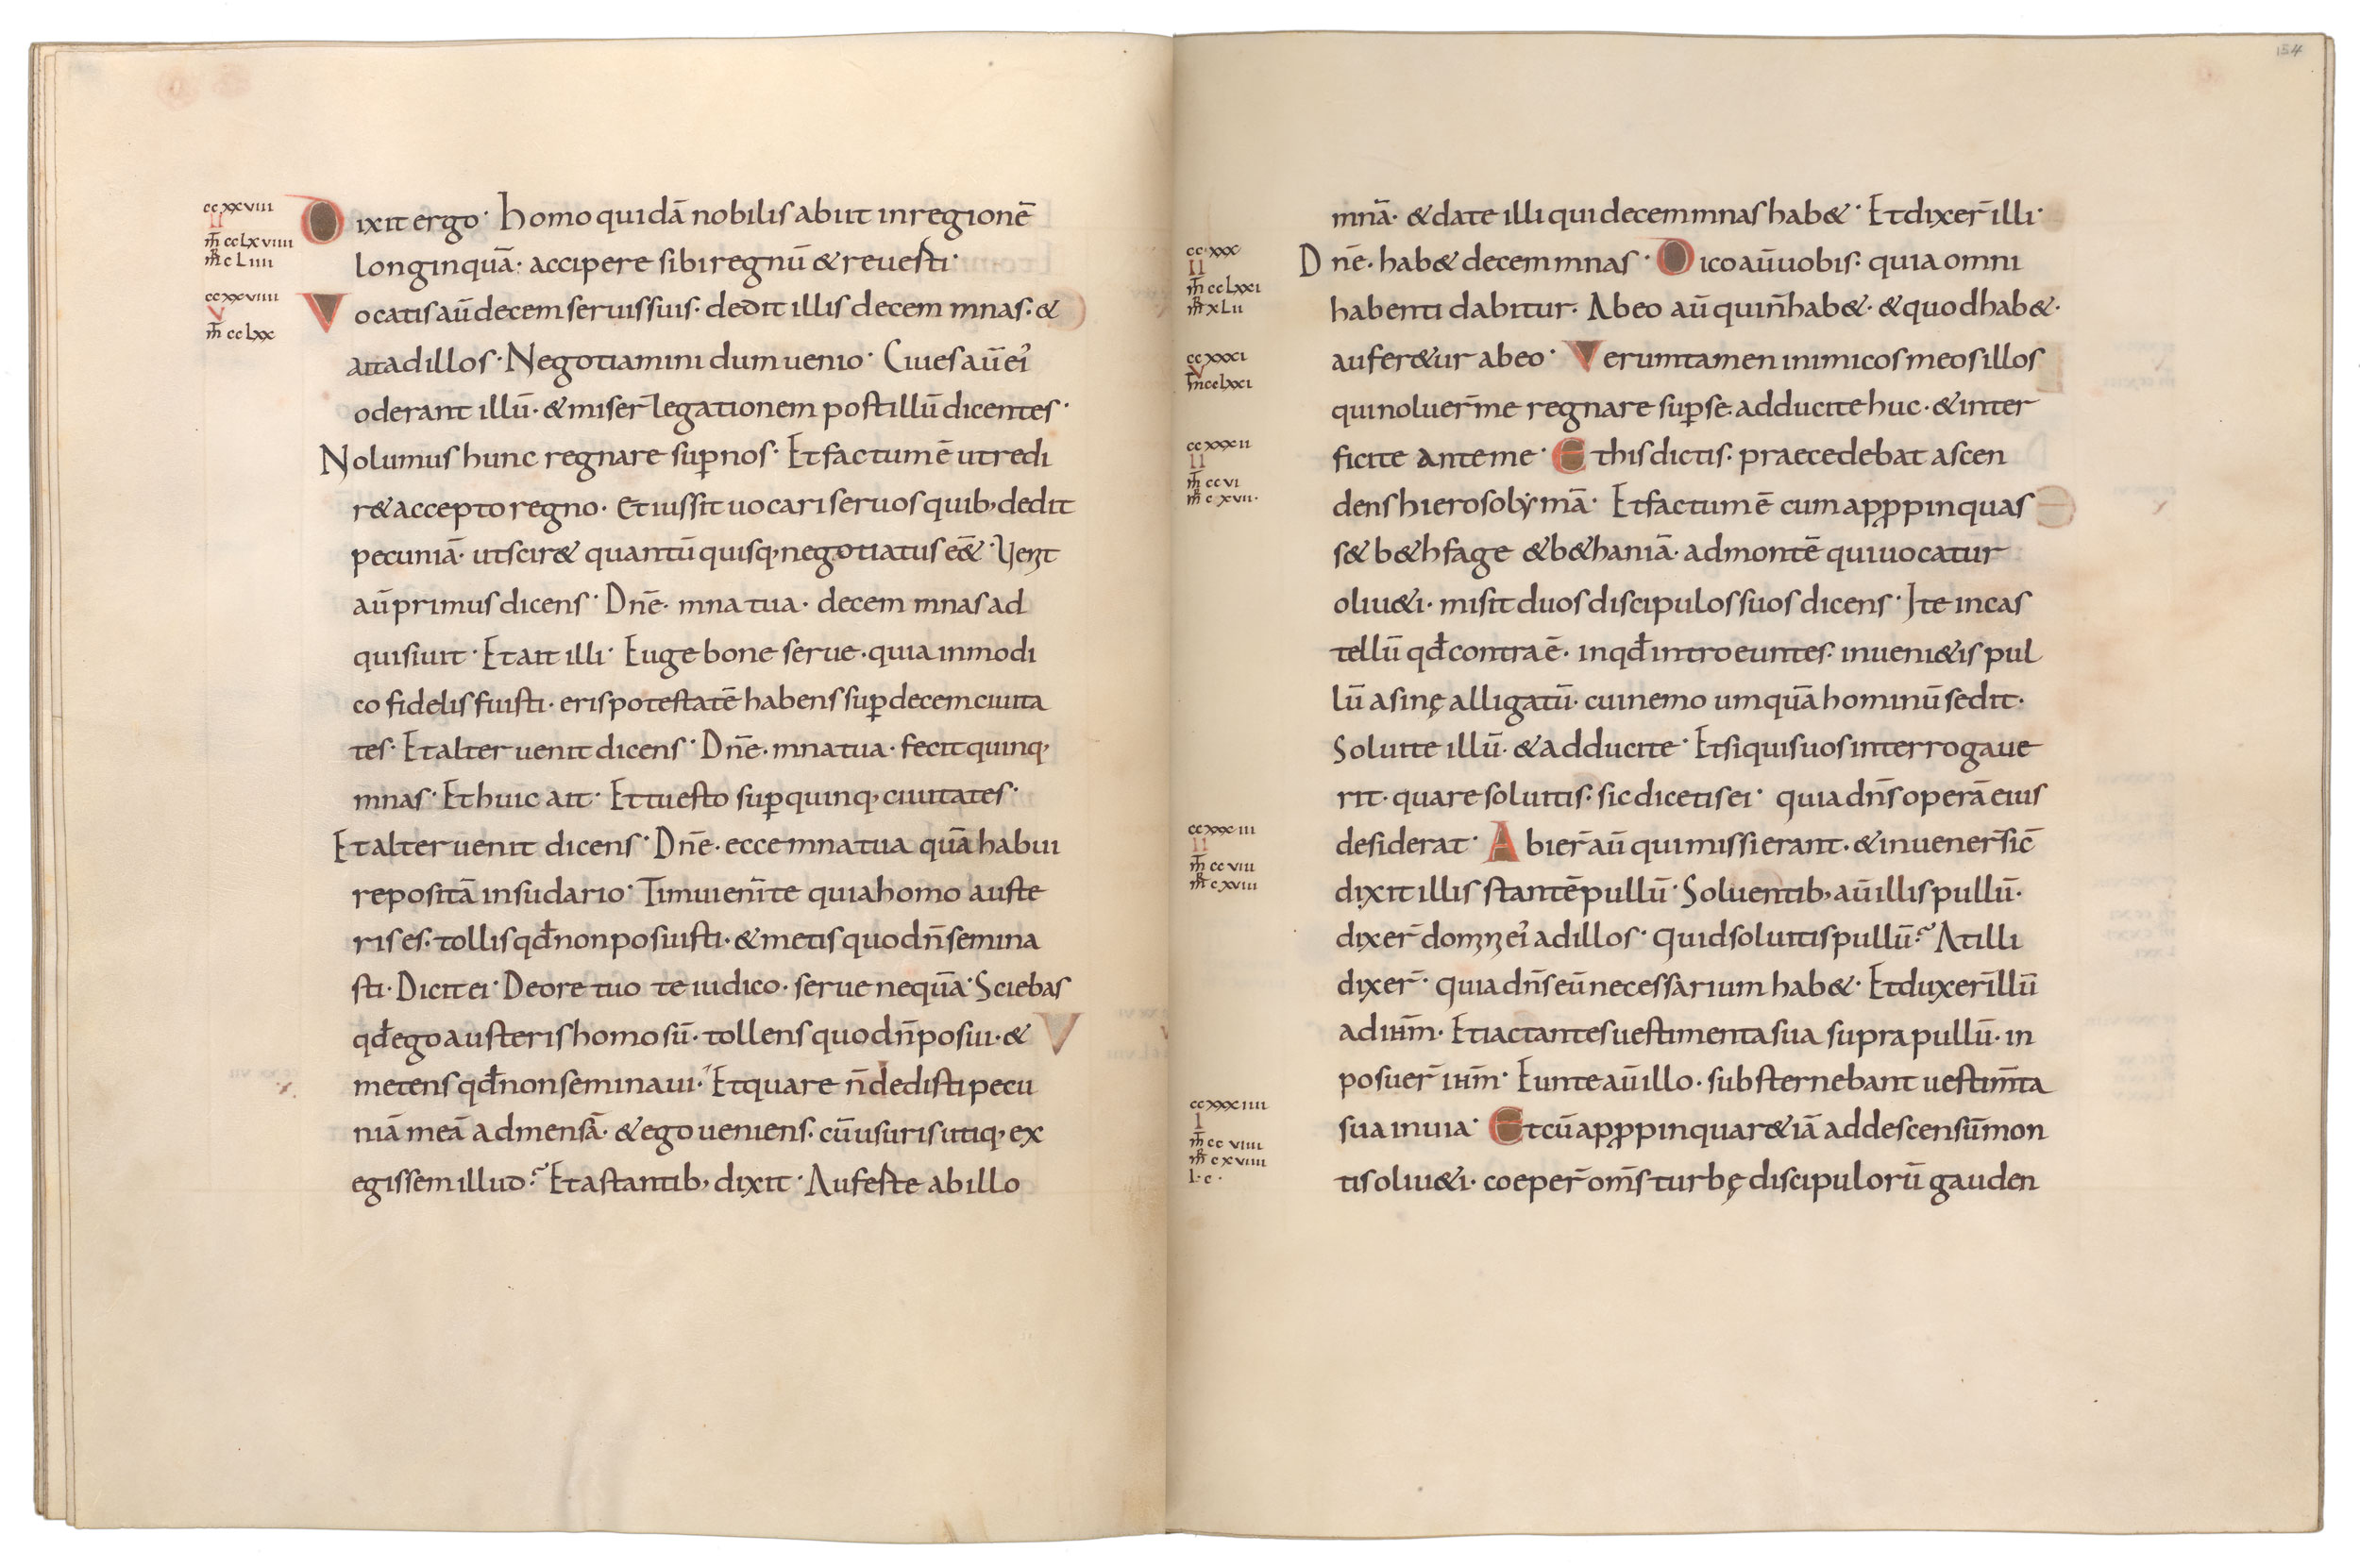 ccxxviii
II
m̄ cclxviiii
m̄r cliiii
Dixit ergo· homo quidā nobilis abiit in regionē
longinquā· accipere sibi regnū & reuesti·
ccxxviiii
V
m̄ cclxx
Vocatis aū decem seruis suis· dedit illis decem mnas· &
ait ad illos· Negotiamini dum uenio· Ciues aū ei'
oderant illū· & miser̄ legationem post illū dicentes·
Nolumus hunc regnare sup̄ nos· Et factum ē ut redi
r& accepto regno· et iussit uocari seruos quib; dedit
pecuniā· ut scir& quantū quisq; negotiatus e&̄·
aū primus dicens· Dn̄e· mna tua· decem mnas ad
quisiuit· Et ait illi· Euge bone serue· quia in modi
co fidelis fuisti· eris potestatē habens sup̄ decem ciuita
tes· Et alter uenit dicens· Dn̄e· mna tua· fecit quinq;
mnas· Et huic ait· Et tu esto sup̄ quinq; ciuitates·
Et alter uenit dicens· Dn̄e· ecce mna tua quā habui
repositā in sudario· Timui enī te quia homo auste
ris es· tollis qđ non posuisti· & metis quod n̄ semina
sti· Dicit ei· De ore tuo te iudico· serue nequā· Sciebas
qđ ego austeris homo sū· tollens quod n̄ posui· &
metens qđ non seminaui· Et quare n̄ dedisti pecu
niā meā ad mensā· & ego ueniens· cū usuris utiq; ex
egissem illud? Et astantib; dixit· Auferte ab illo
154
mnā· & date illi qui decem mnas hab&· Et dixer̄ illi·
ccxxx
II
m̄ cclxxi
m̄r xlii
Dn̄e· hab& decem mnas· Dico aū uobis· quia omni
habenti dabitur· Ab eo aū qui n̄ hab&· & quod hab&·
ccxxxi
V
m̄ cclxxi
aufer&ur ab eo· Verumtamen inimicos meos illos
qui noluer̄ me regnare sup̄ se· adducite huc· & inter
ccxxxii
II
m̄ ccvi
m̄r cxvii·
ficite ante me· Et his dictis· praecedebat ascen
dens hierosolẏmā· Et factum ē cum appropinquas
s& b&hfage & b&haniā· ad montē qui uocatur
oliu&i· misit duos discipulos suos dicens· Ite in cas
tellū qđ contra ē· in qđ introeuntes· inueni&is pul
lū asinę alligatū· cui nemo umquā hominū sedit·
Soluite illū· & adducite· Et si quis uos interrogaue
rit· quare soluitis· sic dicetis ei· quia dn̄s operā eius
ccxxxiii
II
m̄ ccviii
m̄r cxviii
desiderat· Abier̄ aū qui missi erant· & inuener̄ sic̄
dixit illis stantē pullū· Soluentib; aū illis pullū·
dixer̄ domini ei' ad illos· quid soluitis pullū? At illi
dixer̄· quia dn̄s eū necessarium hab&· Et duxer̄ illū
ad ihm̄· Et iactantes uestimenta sua supra pullū· in
posuer̄ ihm̄· Eunte aū illo· substernebant uestim̄ta
ccxxxiiii
I
m̄ ccviiii
m̄r cxviiii
l· c·
sua in uia· Et cū appropinquar& iā ad descensū mon
tis oliu&i· coeper̄ om̄s turbę discipulorū gauden